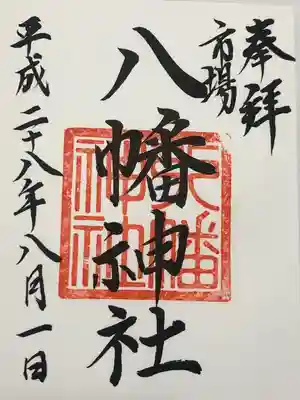 奉拝
市場
八幡神社
八幡神社
平成二十八年八月一日